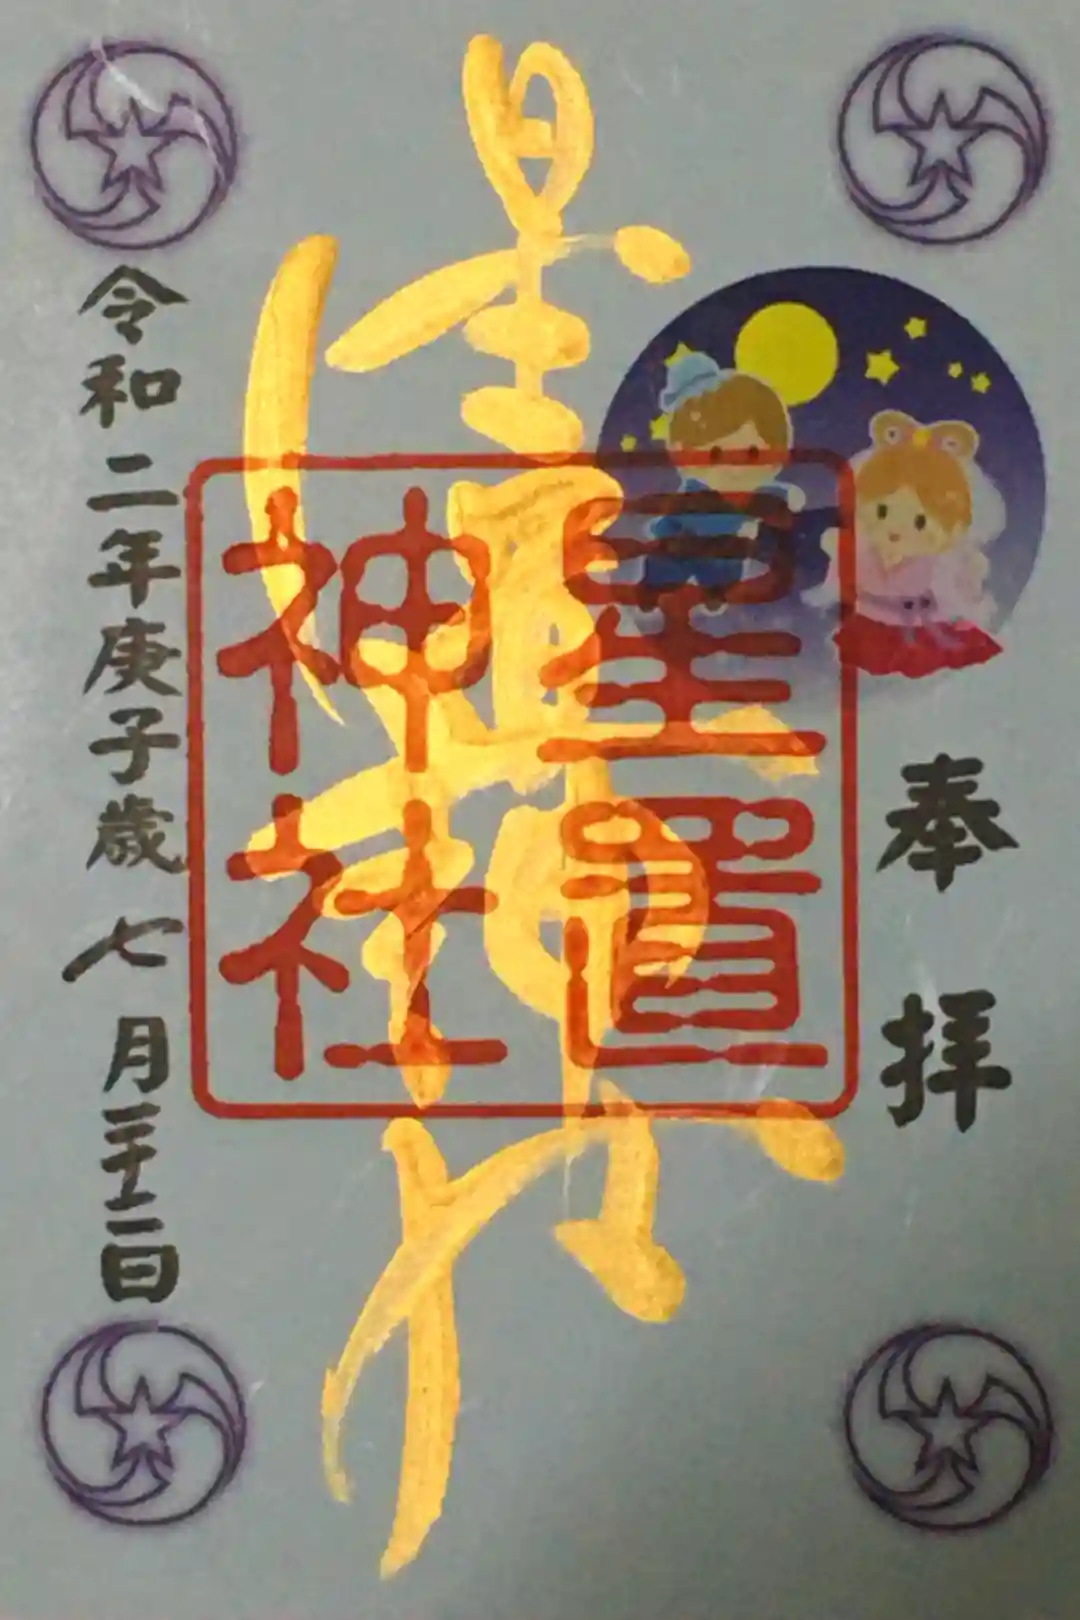 奉拝
星置神社
星置
神社
令和二年庚子歳 七月二十二日